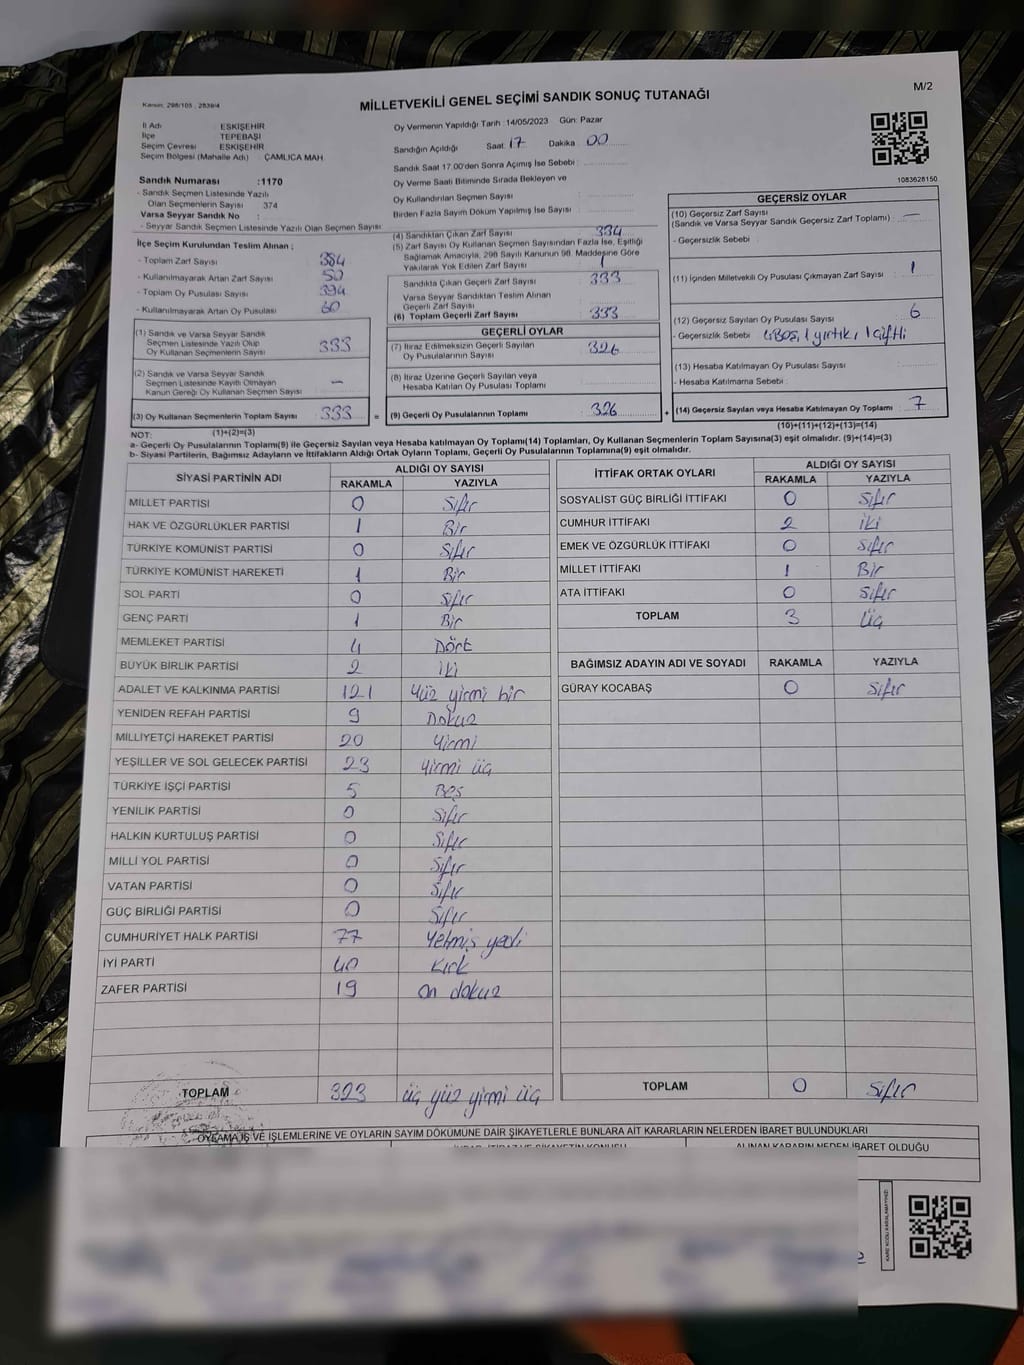 M/2
Kanun: 298/105 , 2839/4
MİLLETVEKİLİ GENEL SEÇİMİ SANDIK SONUÇ TUTANAĞI
İl Adı : ESKİŞEHİR
İlçe : TEPEBAŞI
Seçim Çevresi : ESKİŞEHİR
Seçim Bölgesi (Mahalle Adı) : ÇAMLICA MAH.
Sandık Numarası :1170
- Sandık Seçmen Listesinde Yazılı
Olan Seçmenlerin Sayısı 374
Varsa Seyyar Sandık No :
- Seyyar Sandık Seçmen Listesinde Yazılı Olan Seçmen Sayısı
Oy Vermenin Yapıldığı Tarih :14/05/2023 Gün: Pazar
Sandığın Açıldığı Saat 17 Dakika 00
Sandık Saat 17:00'den Sonra Açımış İse Sebebi :
Oy Verme Saati Bitiminde Sırada Bekleyen ve
Oy Kullandırılan Seçmen Sayısı :
Birden Fazla Sayım Döküm Yapılmış İse Sayısı :
1083628150
İlçe Seçim Kurulundan Teslim Alınan ;
- Toplam Zarf Sayısı 384
- Kullanılmayarak Artan Zarf Sayısı 50
- Toplam Oy Pusulası Sayısı 394
- Kullanılmayarak Artan Oy Pusulası 60
(1) Sandık ve Varsa Seyyar Sandık
Seçmen Listesinde Yazılı Olup
Oy Kullanan Seçmenlerin Sayısı 333
(2) Sandık ve Varsa Seyyar Sandık
Seçmen Listesinde Kayıtlı Olmayan
Kanun Gereği Oy Kullanan Seçmen Sayısı —
(3) Oy Kullanan Seçmenlerin Toplam Sayısı 333 =
(1)+(2)=(3)
(4) Sandıktan Çıkan Zarf Sayısı 334
(5) Zarf Sayısı Oy Kullanan Seçmen Sayısından Fazla İse, Eşitliği
Sağlamak Amacıyla, 298 Sayılı Kanunun 98. Maddesine Göre
Yakılarak Yok Edilen Zarf Sayısı 1
Sandıkta Çıkan Geçerli Zarf Sayısı 333
Varsa Seyyar Sandıktan Teslim Alınan
Geçerli Zarf Sayısı
(6) Toplam Geçerli Zarf Sayısı : 333
GEÇERLİ OYLAR
(7) İtiraz Edilmeksizin Geçerli Sayılan
Oy Pusulalarının Sayısı 326
(8) İtiraz Üzerine Geçerli Sayılan veya
Hesaba Katılan Oy Pusulası Toplamı
(9) Geçerli Oy Pusulalarının Toplamı 326 +
GEÇERSİZ OYLAR
(10) Geçersiz Zarf Sayısı
(Sandık ve Varsa Seyyar Sandık Geçersiz Zarf Toplamı) : —
- Geçersizlik Sebebi :
(11) İçinden Milletvekili Oy Pusulası Çıkmayan Zarf Sayısı : 1
(12) Geçersiz Sayılan Oy Pusulası Sayısı 6
- Geçersizlik Sebebi 4Boş, 1 yırtık, 1 Çiftli
(13) Hesaba Katılmayan Oy Pusulası Sayısı :
- Hesaba Katılmama Sebebi :
(14) Geçersiz Sayılan veya Hesaba Katılmayan Oy Pusulası Toplamı 7
(10)+(11)+(12)+(13)=(14)
NOT:
a- Geçerli Oy Pusulalarının Toplamı(9) ile Geçersiz Sayılan veya Hesaba katılmayan Oy Toplamı(14) Toplamları, Oy Kullanan Seçmenlerin Toplam Sayısına(3) eşit olmalıdır. (9)+(14)=(3)
b- Siyasi Partilerin, Bağımsız Adayların ve İttifakların Aldığı Ortak Oyların Toplamı, Geçerli Oy Pusulalarının Toplamına(9) eşit olmalıdır.
SİYASİ PARTİNİN ADI ALDIĞI OY SAYISI
RAKAMLA YAZIYLA
MİLLET PARTİSİ 0 Sıfır
HAK VE ÖZGÜRLÜKLER PARTİSİ 1 Bir
TÜRKİYE KOMÜNİST PARTİSİ 0 Sıfır
TÜRKİYE KOMÜNİST HAREKETİ 1 Bir
SOL PARTİ 0 Sıfır
GENÇ PARTİ 1 Bir
MEMLEKET PARTİSİ 4 Dört
BÜYÜK BİRLİK PARTİSİ 2 iki
ADALET VE KALKINMA PARTİSİ 121 Yüz yirmi bir
YENİDEN REFAH PARTİSİ 9 Dokuz
MİLLİYETÇİ HAREKET PARTİSİ 20 Yirmi
YEŞİLLER VE SOL GELECEK PARTİSİ 23 Yirmi üç
TÜRKİYE İŞÇİ PARTİSİ 5 Beş
YENİLİK PARTİSİ 0 Sıfır
HALKIN KURTULUŞ PARTİSİ 0 Sıfır
MİLLİ YOL PARTİSİ 0 Sıfır
VATAN PARTİSİ 0 Sıfır
GÜÇ BİRLİĞİ PARTİSİ 0 Sıfır
CUMHURİYET HALK PARTİSİ 77 Yetmiş yedi
İYİ PARTİ 40 Kırk
ZAFER PARTİSİ 19 On dokuz
TOPLAM 323 üç yüz yirmi üç
İTTİFAK ORTAK OYLARI ALDIĞI OY SAYISI
RAKAMLA YAZIYLA
SOSYALİST GÜÇ BİRLİĞİ İTTİFAKI 0 Sıfır
CUMHUR İTTİFAKI 2 iki
EMEK VE ÖZGÜRLÜK İTTİFAKI 0 Sıfır
MİLLET İTTİFAKI 1 Bir
ATA İTTİFAKI 0 Sıfır
TOPLAM 3 üç
BAĞIMSIZ ADAYIN ADI VE SOYADI RAKAMLA YAZIYLA
GÜRAY KOCABAŞ 0 Sıfır
TOPLAM 0 Sıfır
OYLAMA İŞ VE İŞLEMLERİNE VE OYLARIN SAYIM DÖKÜMÜNE DAİR ŞİKAYETLERLE BUNLARA AİT KARARLARIN NELERDEN İBARET BULUNDUKLARI
ALINAN KARARIN NEDEN İBARET OLDUĞU